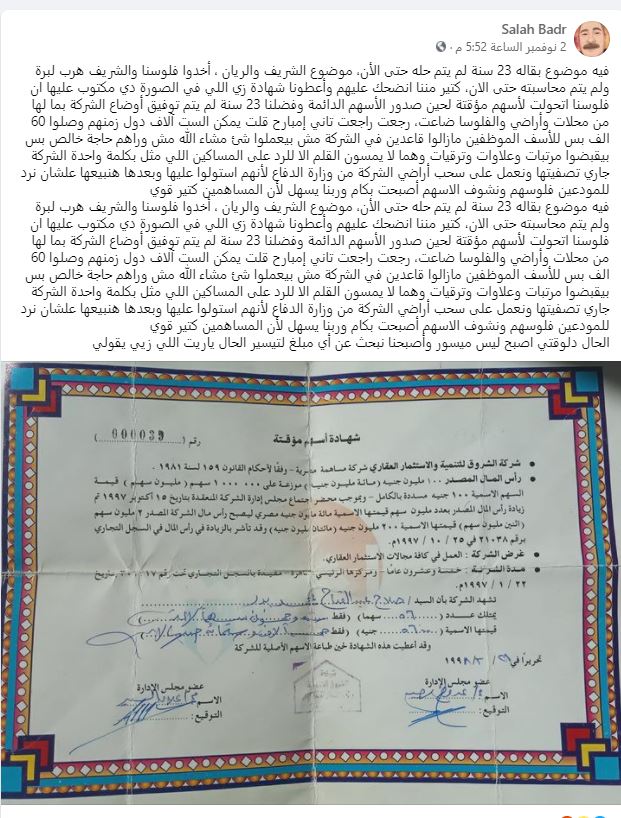 Salah Badr
2 نوفمبر الساعة 5:52 م ·
فيه موضوع بقاله 23 سنة لم يتم حله حتى الأن، موضوع الشريف والريان ، أخدوا فلوسنا والشريف هرب لبرة
ولم يتم محاسبته حتى الان، كتير مننا انضحك عليهم وأعطونا شهادة زي اللي في الصورة دي مكتوب عليها ان
فلوسنا اتحولت لأسهم مؤقتة لحين صدور الأسهم الدائمة وفضلنا 23 سنة لم يتم توفيق أوضاع الشركة بما لها
من محلات وأراضي والفلوسا ضاعت، رجعت راجعت تاني إمبارح قلت يمكن الست آلاف دول زمنهم وصلوا 60
الف بس للأسف الموظفين مازالوا قاعدين في الشركة مش بيعملوا شئ مشاء الله مش وراهم حاجة خالص بس
بيقبضوا مرتبات وعلاوات وترقيات وهما لا يمسون القلم الا للرد على المساكين اللي مثل بكلمة واحدة الشركة
جاري تصفيتها ونعمل على سحب أراضي الشركة من وزارة الدفاع لأنهم استولوا عليها وبعدها هنبيعها علشان نرد
للمودعين فلوسهم ونشوف الاسهم أصبحت بكام وربنا يسهل لأن المساهمين كتير قوي
فيه موضوع بقاله 23 سنة لم يتم حله حتى الأن، موضوع الشريف والريان ، أخدوا فلوسنا والشريف هرب لبرة
ولم يتم محاسبته حتى الان، كتير مننا انضحك عليهم وأعطونا شهادة زي اللي في الصورة دي مكتوب عليها ان
فلوسنا اتحولت لأسهم مؤقتة لحين صدور الأسهم الدائمة وفضلنا 23 سنة لم يتم توفيق أوضاع الشركة بما لها
من محلات وأراضي والفلوسا ضاعت، رجعت راجعت تاني إمبارح قلت يمكن الست آلاف دول زمنهم وصلوا 60
الف بس للأسف الموظفين مازالوا قاعدين في الشركة مش بيعملوا شئ مشاء الله مش وراهم حاجة خالص بس
بيقبضوا مرتبات وعلاوات وترقيات وهما لا يمسون القلم الا للرد على المساكين اللي مثل بكلمة واحدة الشركة
جاري تصفيتها ونعمل على سحب أراضي الشركة من وزارة الدفاع لأنهم استولوا عليها وبعدها هنبيعها علشان نرد
للمودعين فلوسهم ونشوف الاسهم أصبحت بكام وربنا يسهل لأن المساهمين كتير قوي
الحال دلوقتي اصبح ليس ميسور وأصبحنا نبحث عن أي مبلغ لتيسير الحال ياريت اللي زيي يقولي
شهادة أسهم مؤقتة
رقم (000039)
• شركة الشروق للتنمية والاستثمار العقاري شركة مساهمة مصرية - وفقا لأحكام القانون ١٥٩ لسنة ١٩٨١ .
• رأس المال المصدر ١٠٠ مليون جنيه (مائة مليون جنيه) موزعة على ١٠٠٠٠٠٠ سهم (مليون سهم) قيمة
السهم الاسمية ١٠٠ جنيه مسددة بالكامل - وبموجب محضر اجتماع مجلس إدارة الشركة المنعقدة بتاريخ ١٥ أكتوبر ١٩٩٧ تم
زيادة رأس المال المصدر بعدد مليون سهم قيمتها الاسمية مائة مليون جنيه مصري ليصبح رأس مال الشركة المصدر ٢ مليون سهم
(اثنين مليون سهم) قيمتها الاسمية ٢٠٠ مليون جنيه (مائتان مليون جنيه) وقد تأشر بالزيادة في رأس المال في السجل التجاري
برقم ٢١٠٣٨ في ٢٥ / ١٠ / ١٩٩٧م.
• غرض الشركة : العمل في كافة مجالات الاستثمار العقاري.
• مدة الشركة : خمسة وعشرون عاما - ومركزها الرئيسي القاهرة - مقيدة بالسجل التجاري تحت رقم بتاريخ
٢٢ / ١ / ١٩٩٧م.
تشهد الشركة بأن السيد / صلاح عبد الفتاح
يمتلك عدد (٥٦ سهما) (فقط ستة وخمسون سهما لا غير)
قيمتها الاسمية (٥٦٠٠ جنيه) (فقط
وقد أعطيت هذه الشهادة لحين طباعة الاسهم الأصلية للشركة
تحريرا في / ٨ / ١٩٩٨
عضو مجلس الإدارة
الاسم :
التوقيع :
عضو مجلس الإدارة
الاسم :
التوقيع :